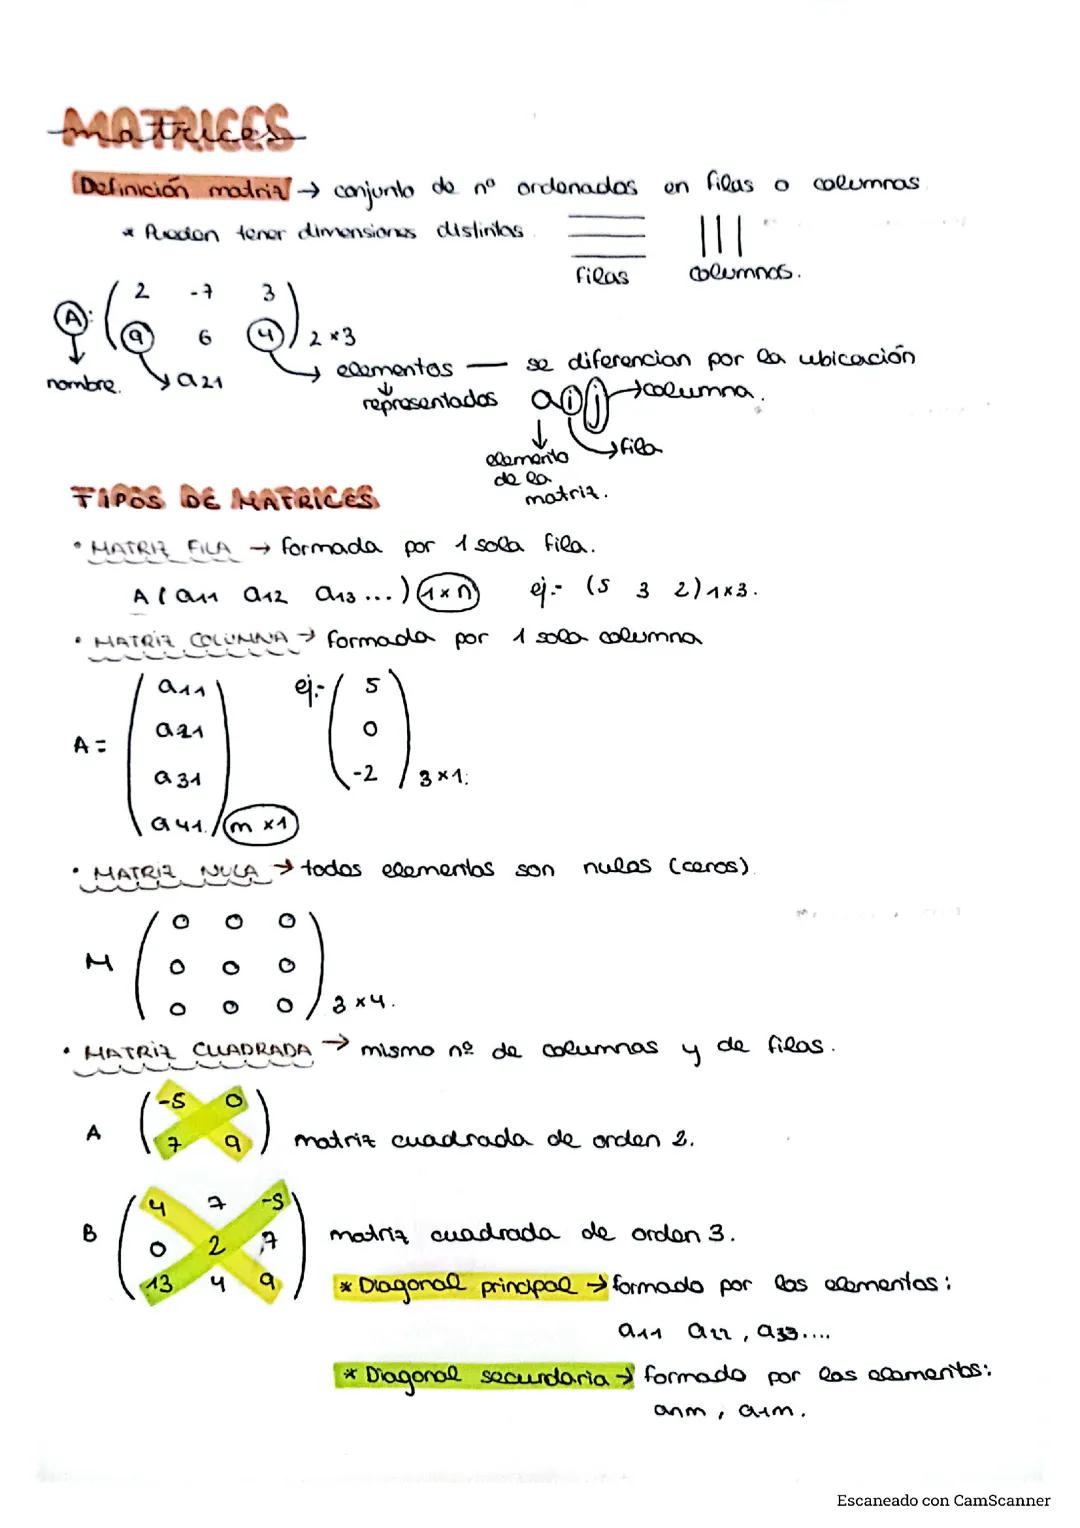 MATRICES
matrices
Definición matriz → conjunto de nº ordenados en filas o columnas
* Pueden tener dimensiones distintas.
filas columnas.
A: ( 2 -7 3
9 6 4 ) 2×3
nombre. a21
→ elementos — se diferencian por la ubicación
representados aij → columna.
→ fila
elemento de la matriz.
TIPOS DE MATRICES
• MATRIZ FILA → formada por 1 sola fila.
A ( a11 a12 a13 ... ) 1×n ej:- (5 3 2) 1×3.
• MATRIZ COLUMNA → formada por 1 sola columna
A = ( a11
a21
a31
a41. ) m×1
ej:- ( 5
0
-2 ) 3×1.
• MATRIZ NULA → todos elementos son nulos (ceros).
M ( 0 0 0
0 0 0
0 0 0 ) 3×4.
• MATRIZ CUADRADA → mismo nº de columnas y de filas.
A ( -5 0
7 9 ) matriz cuadrada de orden 2.
B ( 4 7 -5
0 2 7
13 4 9 )
matriz cuadrada de orden 3.
* Diagonal principal → formado por los elementos:
a11 a22, a33....
* Diagonal secundaria → formado por los elementos:
anm, a1m.
Escaneado con CamScanner